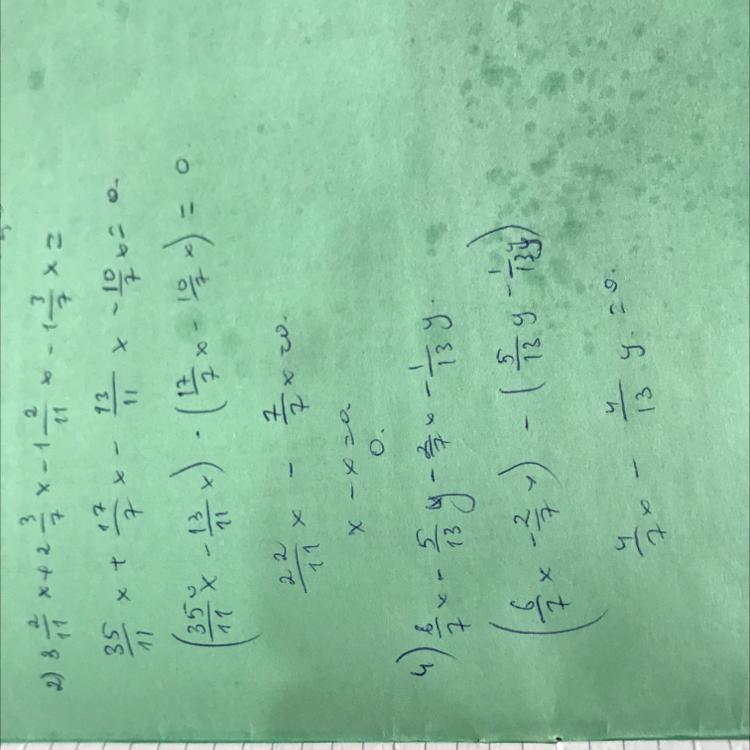 2) 3 2/11 x + 2 3/7 x - 1 2/11 x - 1 3/7 x =
35/11 x + 17/7 x - 13/11 x - 10/7 x = 0.
(35/11 x - 13/11 x) - (17/7 x - 10/7 x) = 0
22/11 x - 7/7 x = 0.
x - x = 0
0.
4) 6/7 x - 5/13 y - 2/7 x - 1/13 y.
(6/7 x - 2/7 x) - (5/13 y - 1/13 y)
4/7 x - 4/13 y. = 0.